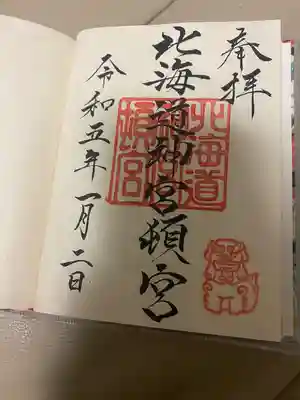 奉拝
北海道神宮頓宮
令和五年一月二日
北海道
頓宮